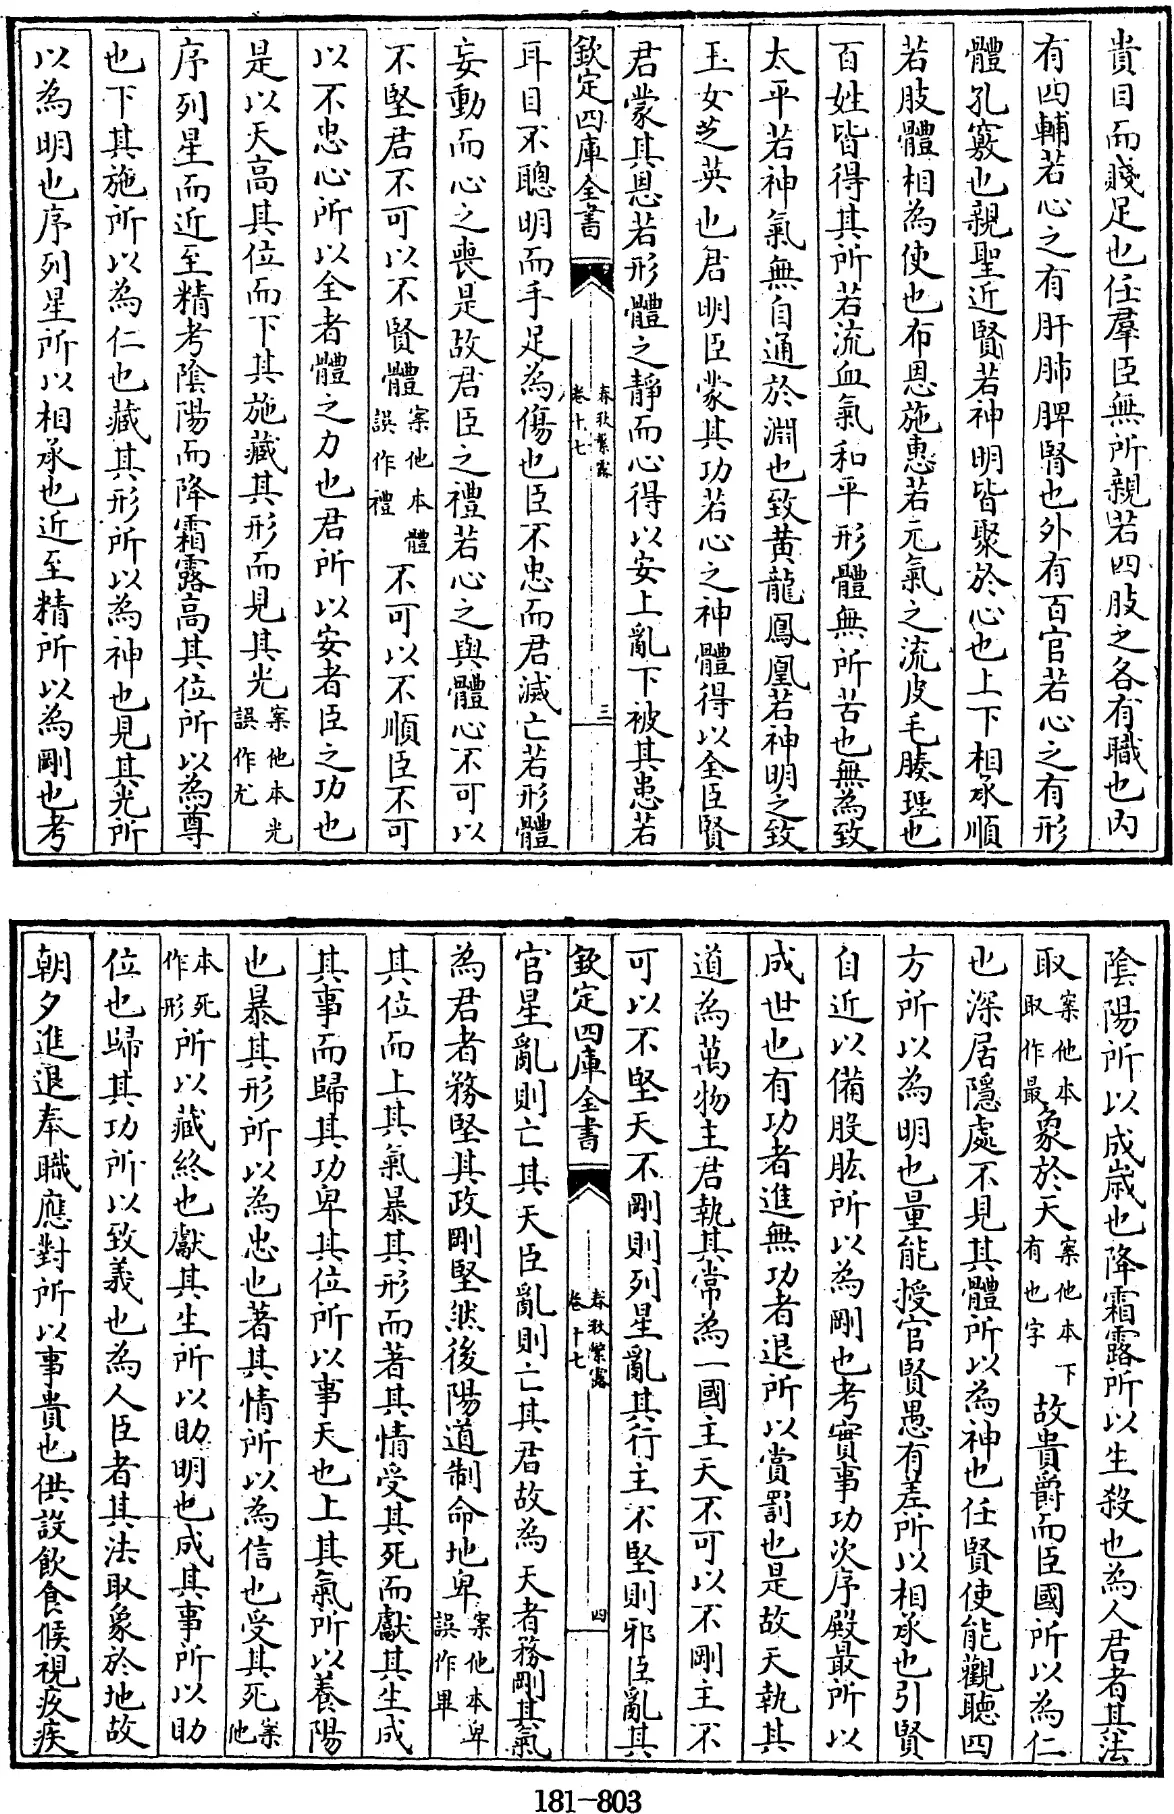 貴目而賤足也任羣臣無所親若四肢之各有職也内
有四輔若心之有肝肺脾腎也外有百官若心之有形
體孔竅也親聖近賢若神明皆聚於心也上下相承順
若肢體相為使也布恩施惠若元氣之流皮毛腠理也
百姓皆得其所若流血氣和平形體無所苦也無為致
太平若神氣無自通於淵也致黄龍鳳凰若神明之致
玉女芝英也君明臣蒙其功若心之神體得以全臣賢
君蒙其恩若形體之靜而心得以安上亂下被其患若
欽定四庫全書 春秋繁露 卷十七 三
耳目不聰明而手足為傷也臣不忠而君滅亡若形體
妄動而心之喪是故君臣之禮若心之與體心不可以
不堅君不可以不賢體案他本體誤作禮不可以不順臣不可
以不忠心所以全者體之力也君所以安者臣之功也
是以天高其位而下其施藏其形而見其光案他本光誤作尤
序列星而近至精考陰陽而降霜露高其位所以為尊
也下其施所以為仁也藏其形所以為神也見其光所
以為明也序列星所以相承也近至精所以為剛也考
陰陽所以成歳也降霜露所以生殺也為人君者其法
取案他本取作最象於天案他本下有也字故貴爵而臣國所以為仁
也深居隱處不見其體所以為神也任賢使能觀聽四
方所以為明也量能授官賢愚有差所以相承也引賢
自近以備股肱所以為剛也考實事功次序殿最所以
成世也有功者進無功者退所以賞罰也是故天執其
道為萬物主君執其常為一國主天不可以不剛主不
可以不堅天不剛則列星亂其行主不堅則邪臣亂其
欽定四庫全書 春秋繁露 卷十七 四
官星亂則亡其天臣亂則亡其君故為天者務剛其氣
為君者務堅其政剛堅然後陽道制命地卑案他本卑誤作畢
其位而上其氣暴其形而著其情受其死而獻其生成
其事而歸其功卑其位所以事天也上其氣所以養陽
也暴其形所以為忠也著其情所以為信也受其死案他
本死作形所以藏終也獻其生所以助明也成其事所以助
位也歸其功所以致義也為人臣者其法取象於地故
朝夕進退奉職應對所以事貴也供設飲食候視疢疾
181-803